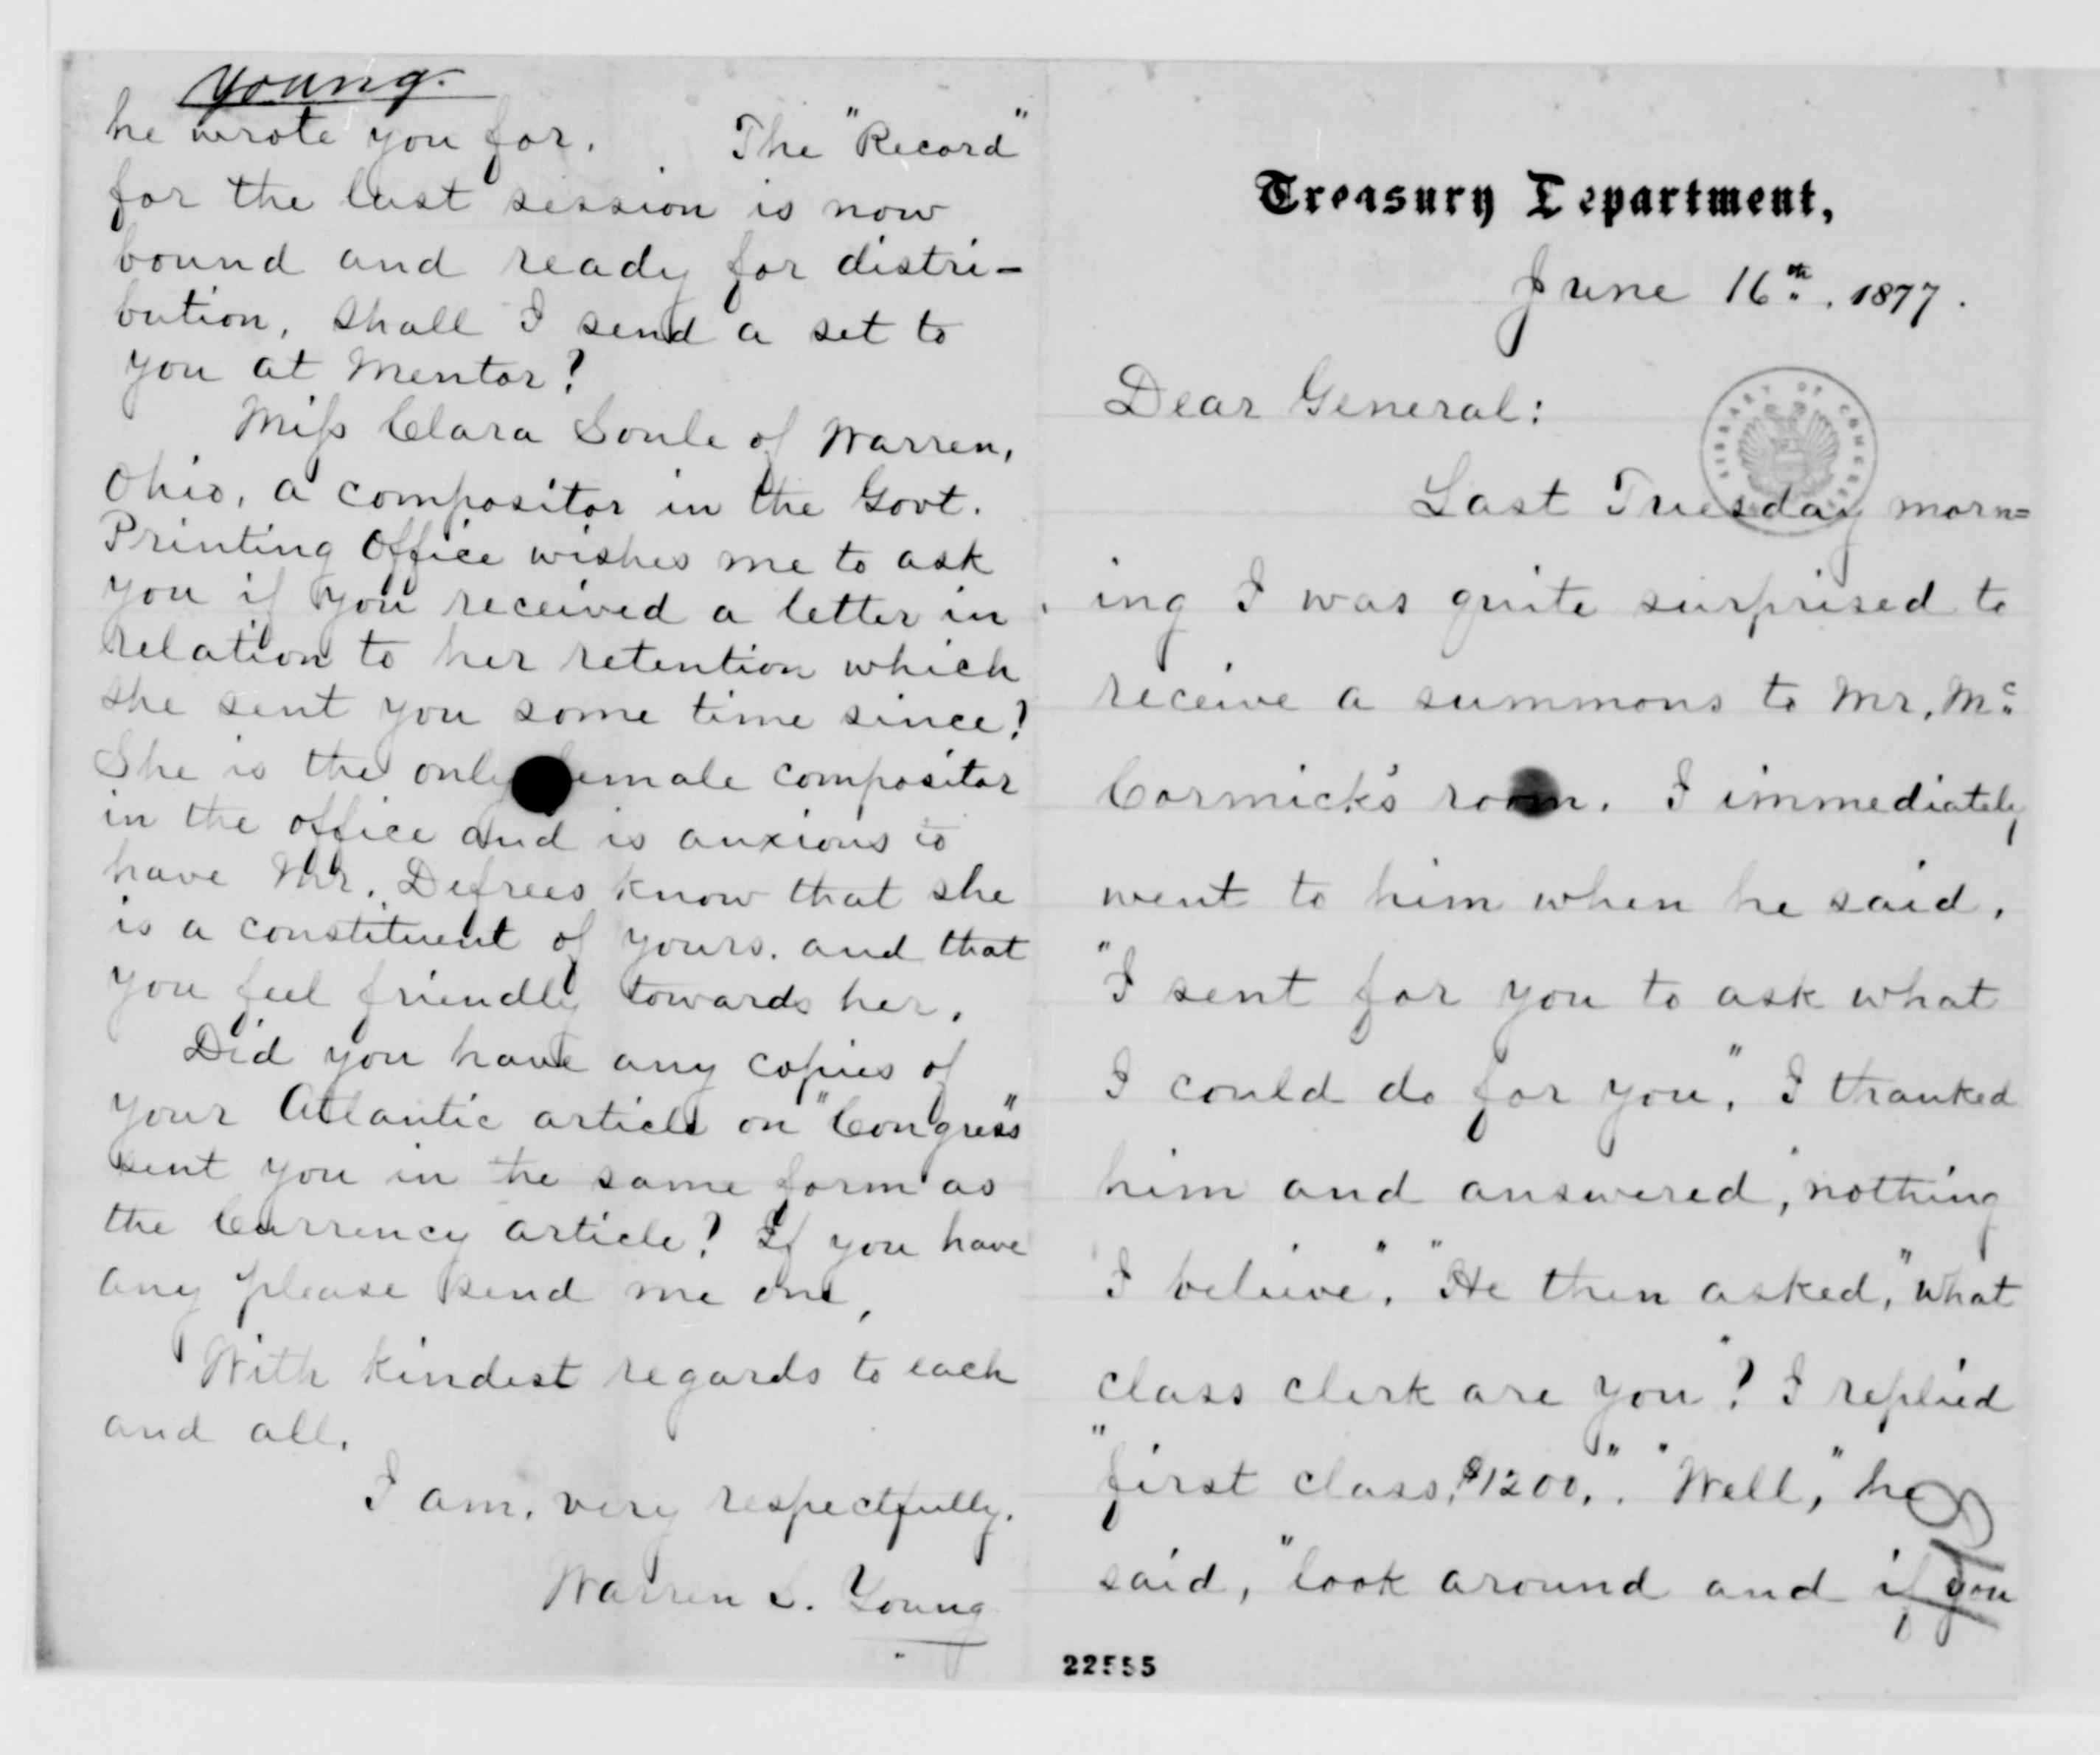 Young.
he wrote you for. The "Record"
for the last session is now
bound and ready for distri-
bution, shall I send a set to
you at Mentor?
Miss Clara Soule of Warren,
Ohio, a compositor in the Govt.
Printing Office wishes me to ask
you if you received a letter in
relation to her retention which
she sent you some time since?
She is the only female compositor
in the office and is anxious to
have Mr. Defrees know that she
is a constituent of yours. and that
you feel friendly towards her.
Did you have any copies of
your Atlantic article on "Congress"
sent you in the same form as
the Currency article? If you have
any please send me one,
With kindest regards to each
and all.
I am, very respectfully.
Warren S. Young
Treasury Department,
June 16th. 1877.
LIBRARY OF CONGRESS
Dear General:
Last Tuesday morn=
ing I was quite surprised to
receive a summons to Mr. Mc
Cormick's room. I immediately
went to him when he said.
"I sent for you to ask what
I could do for you". I thanked
him and answered, "nothing
I believe". "He then asked, "what
class clerk are you"? I replied
"first class, $1200,". "Well," he
said, "look around and if you
22555